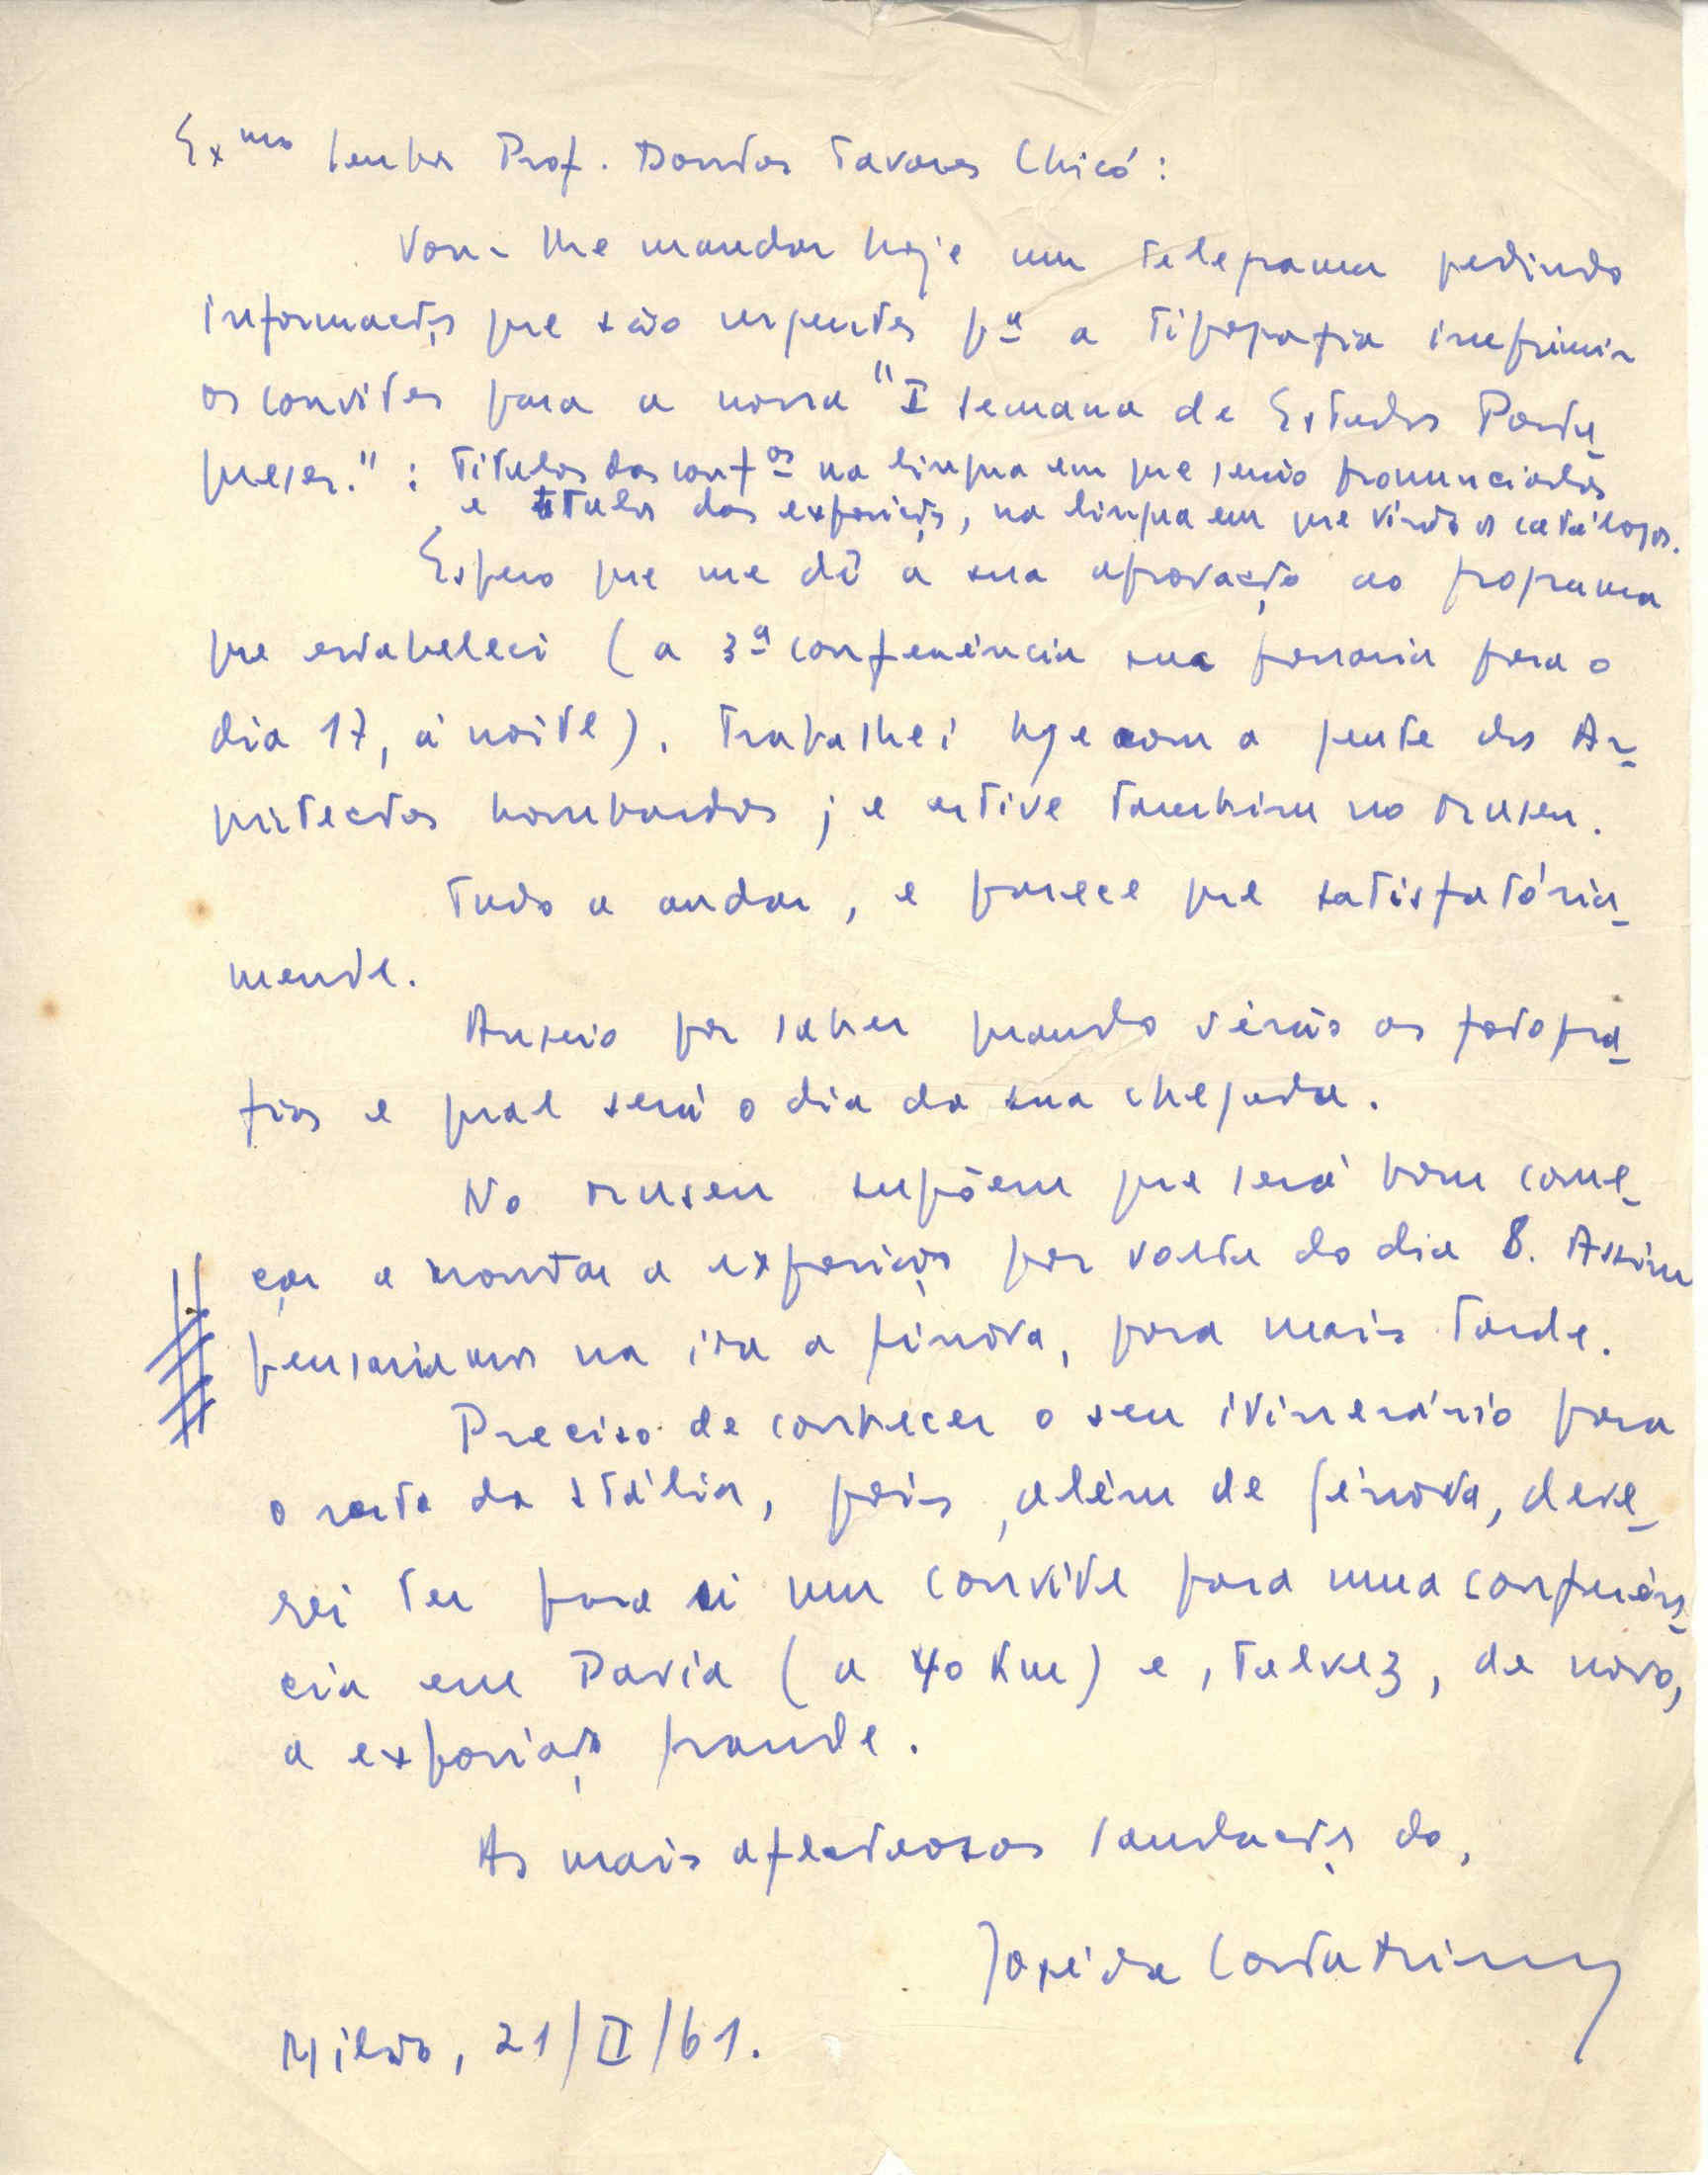 Ex.mo Senhor Prof. Doutor Tavares Chicó:
Vou-lhe mandar hoje um telegrama pedindo
informações que são urgentes p.ª a tipografia imprimir
os convites para a nossa "I Semana de Estudos Portu-
gueses." : Títulos das conf.as na língua em que serão pronunciadas
e títulos das exposições, na língua em que virão os catálogos.
Espero que me dê a sua aprovação ao programa
que estabeleci (a 3ª conferência sua passaria para o
dia 17, à noite). Trabalhei hoje com a gente dos Ar-
quitectos lombardos; e estive também no Museu.
Tudo a andar, e parece que satisfatória-
mente.
Anseio por saber quando virão as fotogra-
fias e qual será o dia da sua chegada.
No Museu supõem que será bom come-
çar a montar a exposição por volta do dia 8. Assim
pensaríamos na ida a Génova, para mais tarde.
Preciso de conhecer o seu itinerário para
o resto da Itália, pois, além de Génova, deve-
rei ter para si um convite para uma conferên-
cia em Pavia (a 40 Km) e, talvez, de novo,
a exposição grande.
As mais afectuosas saudações do,
José da Costa Miranda
Milão, 21/II/61.